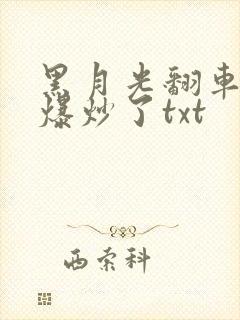 黑月光翻車
爆炒了txt
西索科